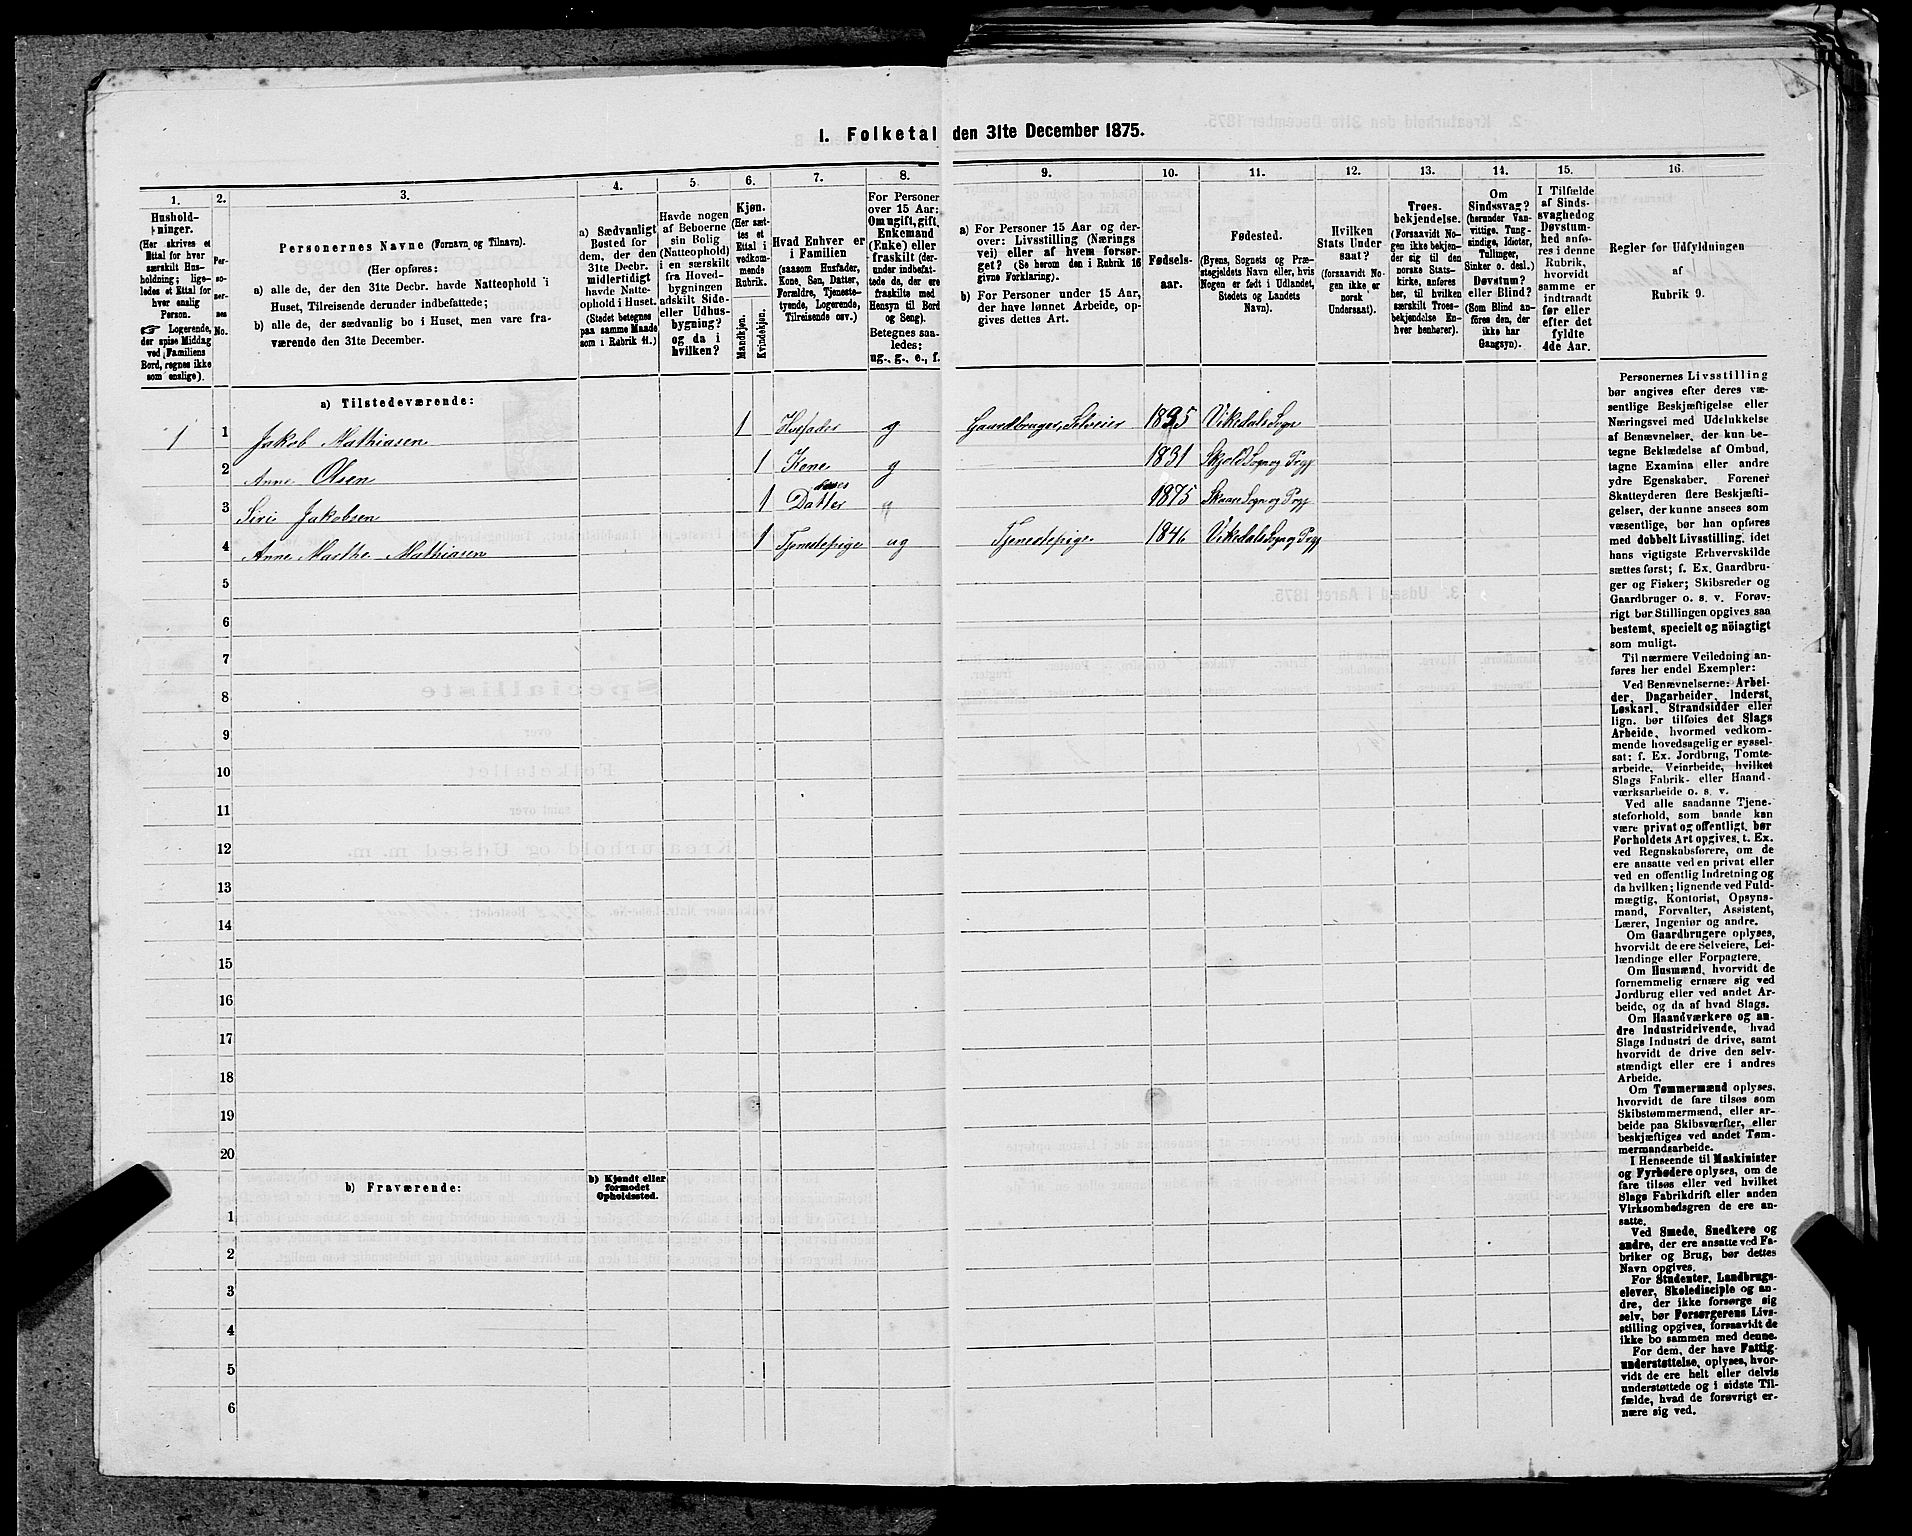 1. Folketal den 31te December 1875.
1.
Hushold-
ninger.
(Her skrives et
Ettal for hver
særskilt Hus-
holdning; lige-
ledes et Ettal for
hver enslig
Person.
☞ Logerende,
der spise Middag
ved Familiens
Bord, regnes ikke
som enslige).
2.
Per-
so-
ner-
nes
No.
3.
Personernes Navne (Fornavn og Tilnavn).
(Her opføres:
a) alle de, der den 31te Decbr. havde Natteophold i
Huset, Tilreisende derunder indbefattede;
b) alle de, der sædvanlig bo i Huset, men vare fra-
værende den 31te December.
4.
a) Sædvanligt
Bosted for
dem, der den
31te Decbr.
midlertidigt
havde Natte-
ophold i Huset.
(Stedet betegnes
paa samme Maade
som i Rubrik 11.)
5.
Havde nogen
af Beboerne
sin Bolig
(Natteophold)
i en særskilt
fra Hoved-
bygningen
adskilt Side-
eller Udhus-
bygning?
og da i
hvilken?
6.
Kjøn.
(Her sæt-
tes et
Ettal i
vedkom-
mende
Rubrik.
Mandkjøn.
Kvindekjøn.
7.
Hvad Enhver er
i Familien
(saasom Husfader,
Kone, Søn, Datter,
Forældre, Tjeneste-
tyende, Logerende,
Tilreisende osv.)
8.
For Personer
over 15 Aar:
Om ugift, gift,
Enkemand
(Enke) eller
fraskilt (der-
under indbefat-
tede de, der ere
fraskilte med
Hensyn til Bord
og Seng).
Betegnes saa-
ledes:
ug., g., e., f.
9.
a) For Personer 15 Aar og der-
over: Livsstilling (Nærings
vei) eller af hvem forsør-
get? (Se herom den i Rubrik 16
givne Forklaring).
b) For Personer under 15 Aar,
der have lønnet Arbeide, op-
gives dettes Art.
10.
Fødsels-
aar.
11.
Fødested.
(Byens, Sognets og Præ-
stegjeldets Navn eller, hvis
Nogen er født i Udlandet,
Stedets og Landets
Navn).
12.
Hvilken
Stats Under
saat?
(forsaavidt No-
gen ikke er
norsk
Undersaat).
13.
Troes-
bekjendelse.
(Forsaavidt No-
gen ikke bekjen-
der sig til den
norske Stats-
kirke, anføres
her, til hvilken
særskilt Troes-
bekjendelse En-
hver henhører).
14.
Om
Sindssvag?
(herunder Van-
vittige, Tung-
sindige, Idioter,
Tullinger,
Sinker o. desl.)
Døvstum?
eller Blind?
(Som Blind an-
føres den, der
ikke har
Gangsyn).
15.
I Tilfælde
af Sinds-
svaghed og
Døvstum-
hed anfø-
res i denne
Rubrik,
hvorvidt
samme er
indtraadt
før eller
efter det
fyldte
4de Aar.
16.
Regler for Udfyldningen
af
Rubrik 9.
a) Tilstedeværende:
1 1 Jakob Mathiasen 1 Husfader g Gaardbruger, Selveier Vikedals Sogn
2 Anne Olsen 1 Kone g 1831 Skjold Sogn og Prgj
3 Siri Jakobsen 1 Datter deres 1875 Skaare Sogn og Prgj
4 Anne Marthe Mathiasen 1 Tjenestepige ug Tjenestepige 1846 Vikedals Sogn og Prgj
5
6
7
8
9
10
11
12
13
14
15
16
17
18
19
20
b) Fraværende:
b) Kjendt eller
formodet
Opholdssted.
1
2
3
4
5
6
Personernes Livsstilling
bør angives efter deres væ-
sentlige Beskjæftigelse eller
Næringsvei med Udelukkelse
af Benævnelser, der kun be-
tegne Beklædelse af Ombud,
tagne Examina eller andre
ydre Egenskaber. Forener
Skatteyderen flere Beskjæfti-
gelser, der kunne ansees som
væsentlige, bør han opføres
med dobbelt Livsstilling, idet
hans vigtigste Erhvervskilde
sættes først; f. Ex. Gaardbru-
ger og Fisker; Skibsreder og
Gaardbruger o. s. v. Forøv-
rigt bør Stillingen opgives saa
bestemt, specielt og nöiagtigt
som muligt.
Til nærmere Veiledning an-
føres her endel Exempler:
Ved Benævnelserne: Arbei-
der, Dagarbeider, Inderst,
Løskarl, Strandsidder eller
lign. bør tilføies det Slags
Arbeide, hvormed vedkom-
mende hovedsagelig er syssel-
sat: f. Ex. Jordbrug, Tomte-
arbeide, Veiarbeide, hvilket
Slags Fabrik- eller Haand-
værksarbeide o. s. v.
Ved alle saadanne Tjene-
steforhold, som baade kan
være privat og offentligt, bør
Forholdets Art opgives, t. Ex.
ved Regnskabsførere, om de
ere ansatte ved en privat eller
ved en offentlig Indretning og
da hvilken; lignende ved Fuld-
mægtig, Kontorist, Opsyns-
mand, Forvalter, Assistent,
Lærer, Ingeniør og andre.
Om Gaardbrugere oplyses,
hvorvidt de ere Selveiere, Lei-
lændinge eller Forpagtere.
Om Husmænd, hvorvidt de
fornemmelig ernære sig ved
Jordbrug eller ved andet Ar-
beide, og da af hvad Slags.
Om Haandværkere og an-
dre Industridrivende, hvad
Slags Industri de drive, samt
hvorvidt de drive den selv-
stændigt eller ere i andres
Arbeide.
Om Tømmermænd oplyses,
hvorvidt de fare tilsøs som
Skibstømmermænd, eller ar-
beide paa Skibsværfter, eller
beskjæftiges ved andet Tøm-
mermandsarbeide.
I Henseende til Maskinister
og Fyrbødere oplyses, om de
fare tilsøs eller ved hvilket
Slags Fabrikdrift eller anden
Virksombedsgren de ere an-
satte.
Ved Smede, Snedkere og
andre, der ere ansatte ved Fa-
briker og Brug, bør dettes
Navn opgives.
For Studenter, Landbrugs-
elever, Skoledisciple og an-
dre, der ikke forsørge sig
selv, bør Forsørgerens Livs-
stilling opgives, forsaavidt de
ikke bo sammen med denne.
For dem, der have Fattig-
understøttelse, oplyses, hvor-
vidt de ere helt eller delvis
understøttede og i sidste Til-
fælde, hvad de forøvrigt er-
nære sig ved.